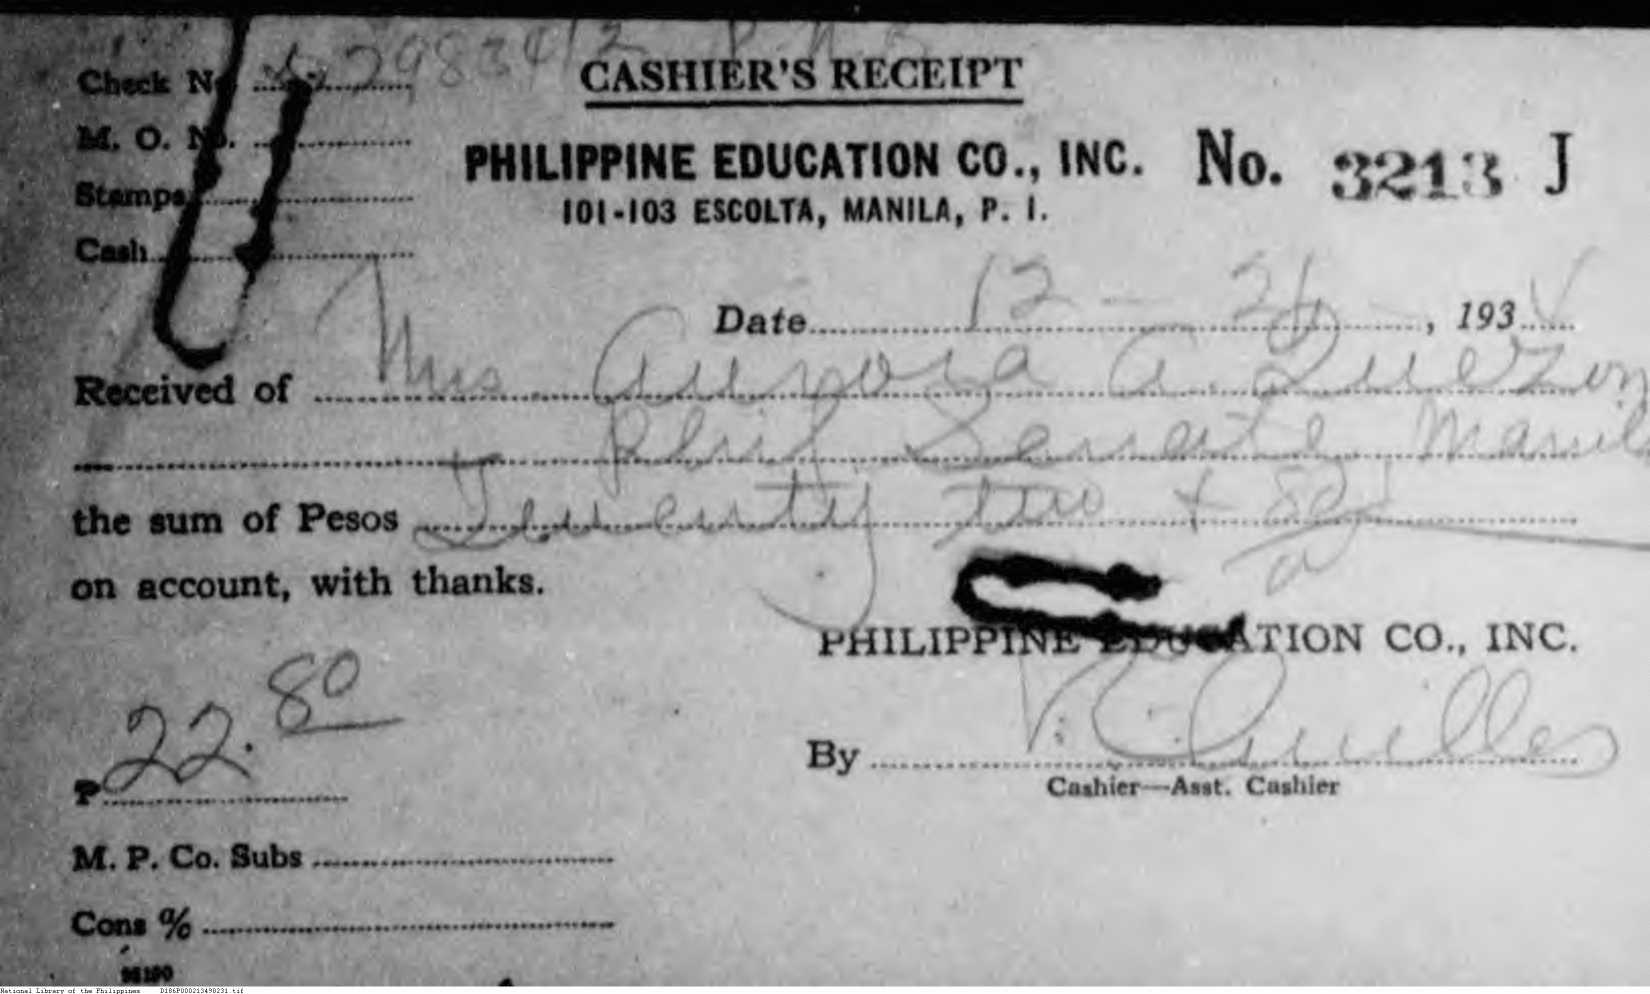 Check No. 298342 P.N.B
CASHIER'S RECEIPT
M. O. No.
Stamps
Cash
PHILIPPINE EDUCATION CO., INC. No. 3213 J
101-103 ESCOLTA, MANILA, P. I.
Date 12 - 26, 193
Received of Mrs Aurora A. Quezon
Phil. Senate Manila
the sum of Pesos Twenty two + 80
on account, with thanks.
PHILIPPINE EDUCATION CO., INC.
₱ 22.80
By
Cashier—Asst. Cashier
M. P. Co. Subs
Cons %
National Library of the Philippines D186P000213498231.tif